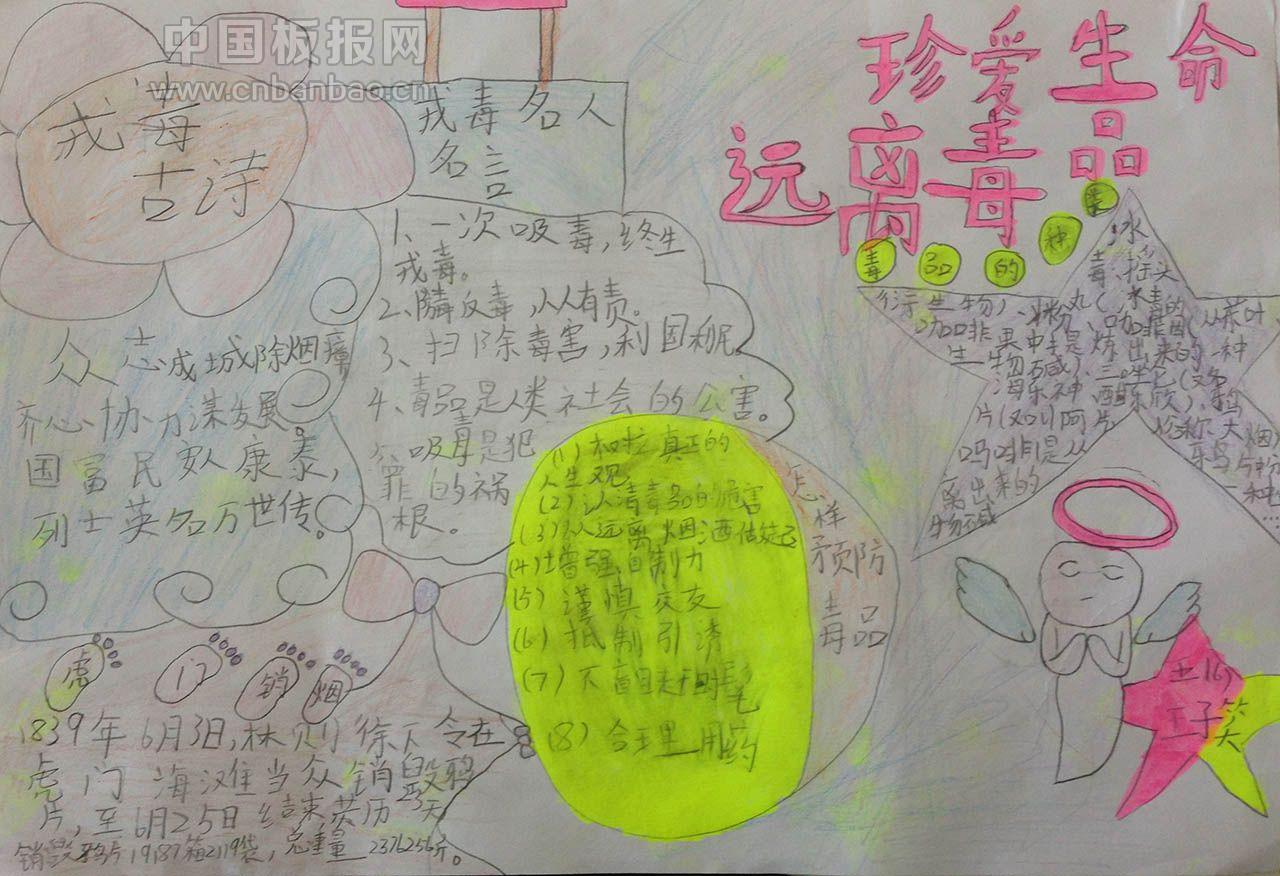 中国板报网
www.cnbanbao.cn
珍爱生命
远离毒品
戒毒
古诗
众志成城除烟瘴
齐心协力谋发展。
国富民安人康泰,
烈士英名万世传。
戒毒名人
名言
1、一次吸毒,终生
戒毒。
2、隣反毒,人人有责。
3、扫除毒害,利国利
4、毒品是人类社会的公害。
吸毒是犯
罪的祸
根。
毒品的种类
冰
毒、摇头
片(又叫阿片
吗啡是从
离出来的
一种
怎样
预防
毒品
人生观
(2)认清毒品的危害
(3)从远离烟酒做起
(4)增强自制力
(5)谨慎交友
(6)抵制引诱
(7)不盲目赶时髦
(8)合理用药
虎门销烟
1839年6月3日,林则徐下令在
虎门海滩当众销毁鸦
片,至6月25日结束共历
天
销毁鸦片19187箱2119袋,总重量2376256斤。
五(6)
王子笑